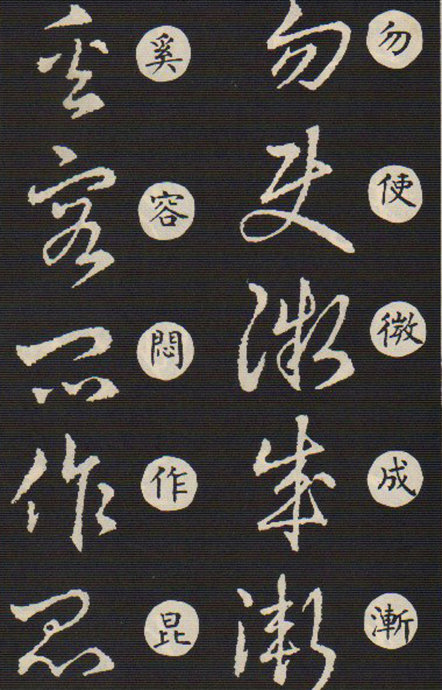 勿使微成漸
勿使微成漸
奚容悶作昆
奚容悶作昆